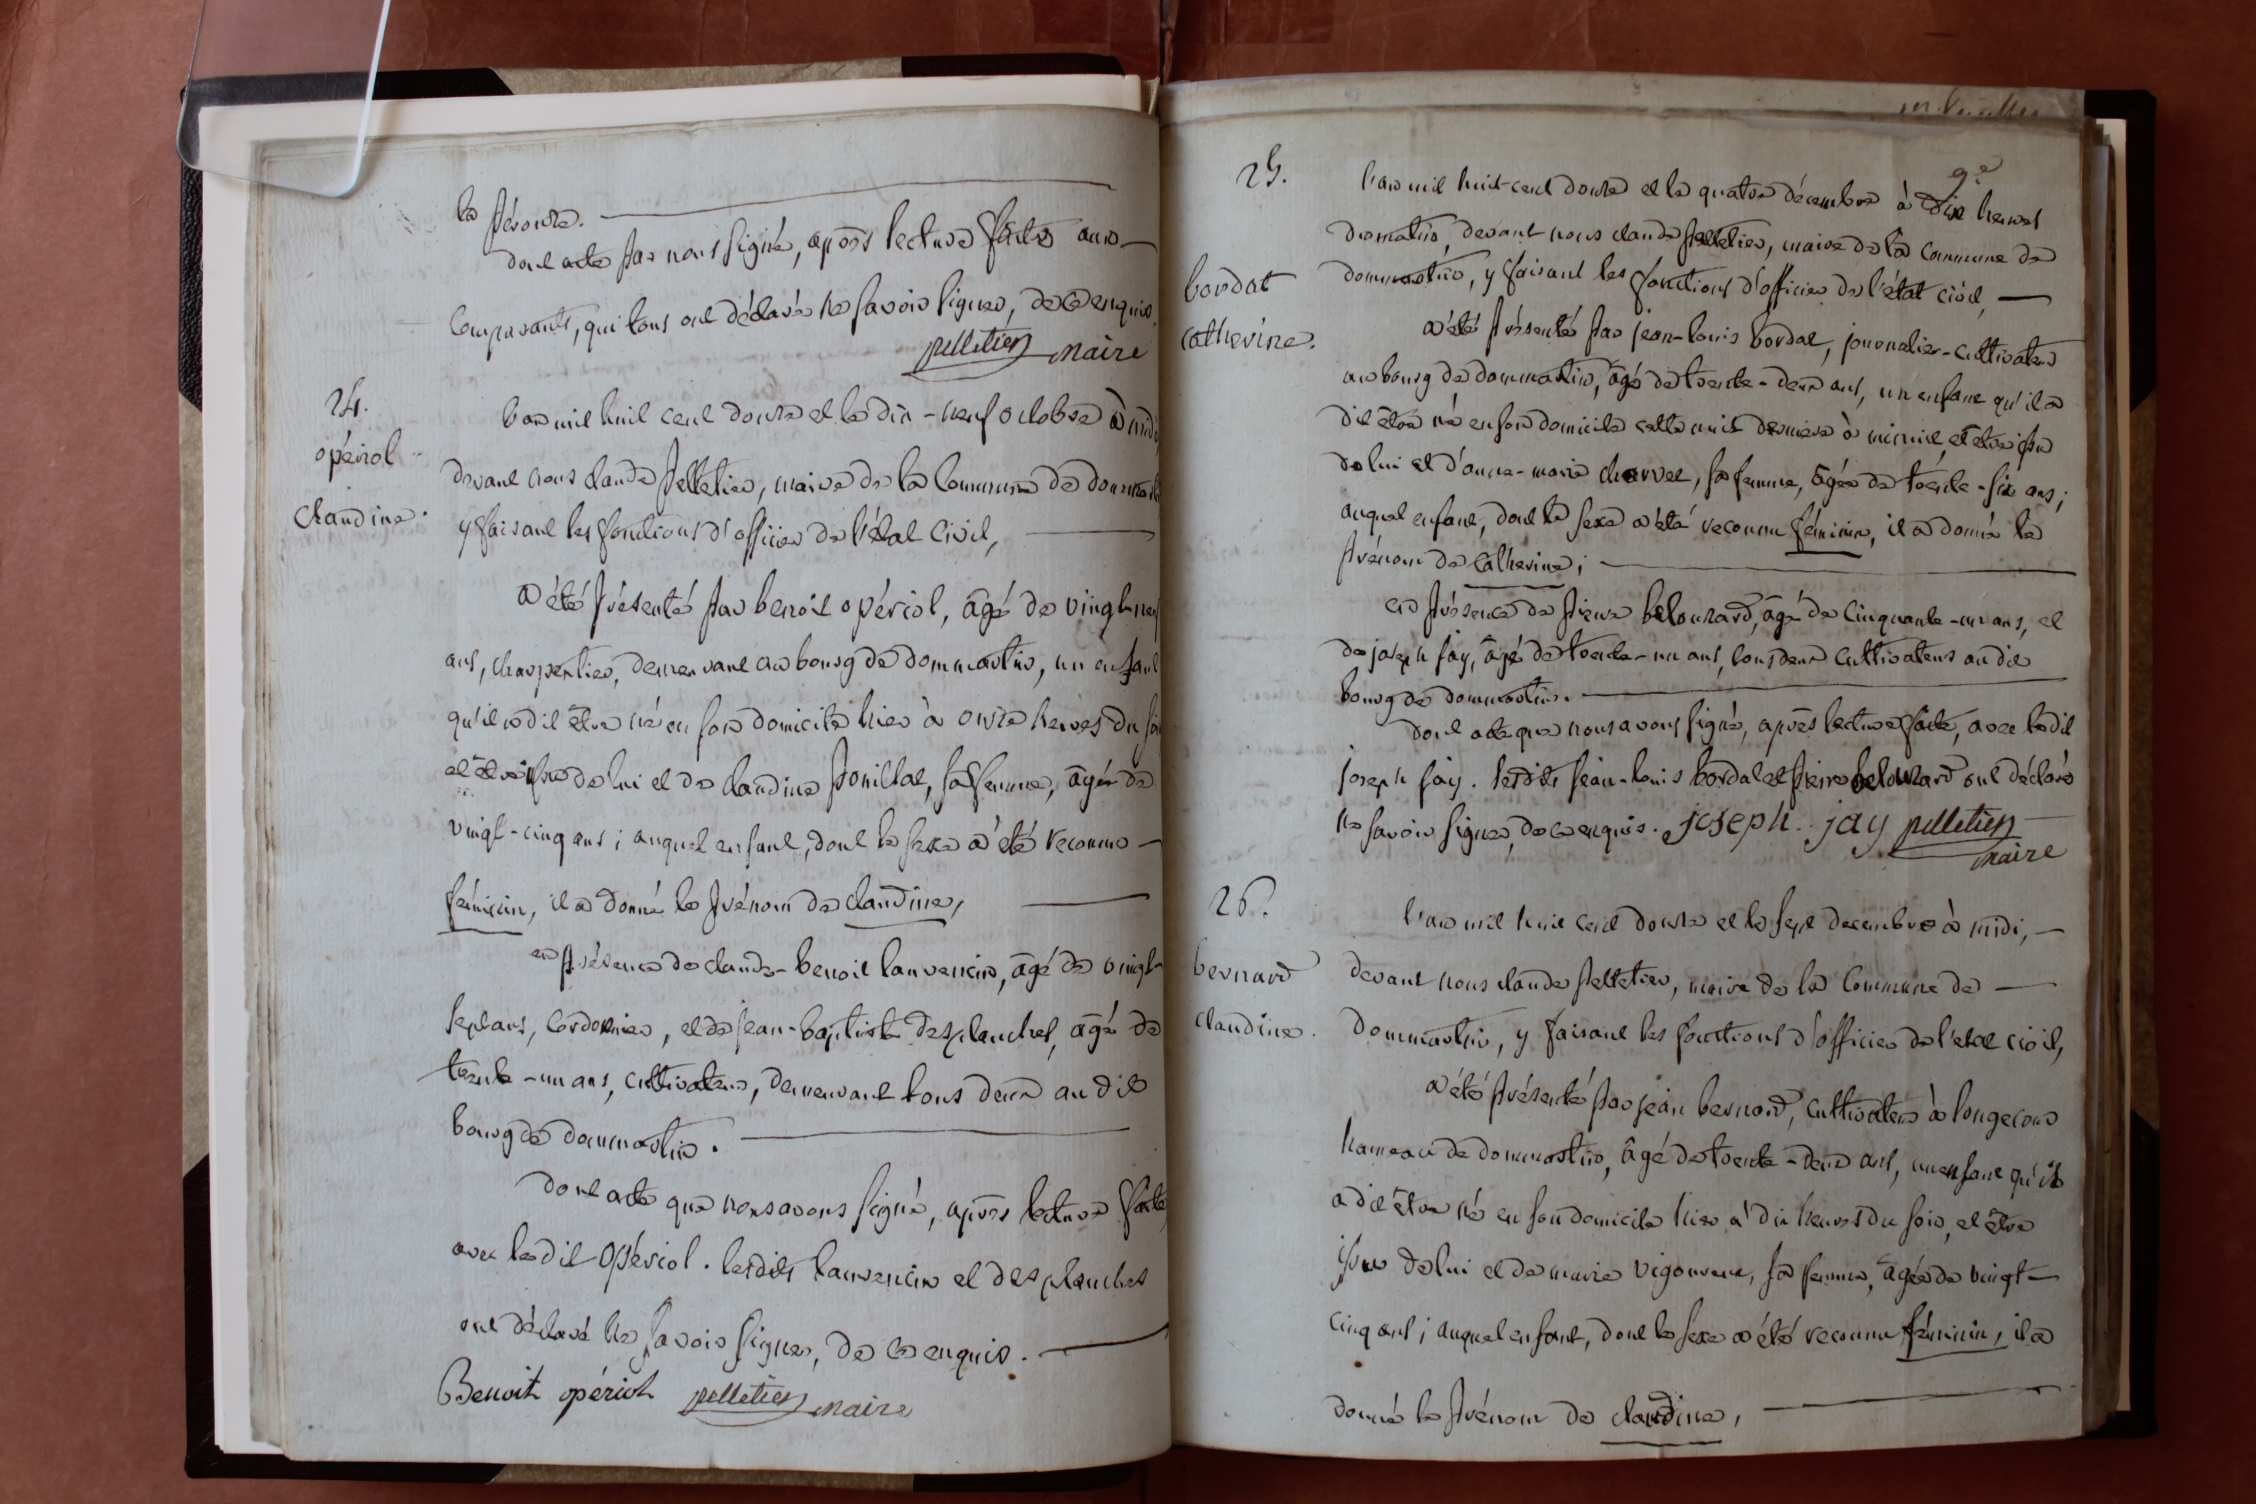 le Péronze.
dont acte par nous signé, après lecture faite aux
comparants, qui tous ont déclaré ne savoir signer, de ce enquis.
pelletier maire
24.
opériol
claudine.
L'an mil huit cent douze et le dix-neuf octobre à midi,
devant nous claude pelletier, maire de la Commune de dommartin
y faisant les fonctions d'officier de l'état civil,
a été présenté par benoit opériol, âgé de vingt-neuf
ans, charpentier, demeurant au bourg de dommartin, un enfant
qu'il a dit être né en son domicile hier à onze heures du soir
et être issu de lui et de claudine pouillat, sa femme, âgée de
vingt-cinq ans; auquel enfant, dont le sexe a été reconnu
féminin, il a donné le prénom de claudine,
en présence de claude-benoit lauvencin, âgé de vingt-
sept ans, cordonnier, et de jean-baptiste desplanches, âgé de
trente-un ans, cultivateur, demeurant tous deux au dit
bourg de dommartin.
dont acte que nous avons signé, après lecture faite,
avec ledit opériol. lesdits lauvencin et desplanches
ont déclaré ne savoir signer, de ce enquis.
Benoit opériol pelletier maire
25.
bordat
catherine.
L'an mil huit-cent douze et le quatre décembre à dix heures
du matin, devant nous claude pelletier, maire de la commune de
dommartin, y faisant les fonctions d'officier de l'état civil,
a été présenté par jean-louis bordat, journalier-cultivateur
au bourg de dommartin, âgé de trente-deux ans, un enfant qu'il a
dit être né en son domicile cette nuit dernière à minuit et être issu
de lui et d'anne-marie charvet, sa femme, âgée de trente-six ans;
auquel enfant, dont le sexe a été reconnu féminin, il a donné le
prénom de catherine;
en présence de pierre belouzard, âgé de cinquante-un ans, et
de joseph jay, âgé de trente-un ans, tous deux cultivateurs au dit
bourg de dommartin.
dont acte que nous avons signé, après lecture faite, avec ledit
joseph jay. lesdits jean-louis bordat et pierre belouzard ont déclaré
ne savoir signer, de ce enquis. joseph. jay pelletier
maire
26.
bernard
claudine.
L'an mil huit cent douze et le sept decembre à midi,
devant nous claude pelletier, maire de la commune de
dommartin, y faisant les fonctions d'officier de l'état civil,
a été présenté par jean bernard, cultivateur à longecour
hameau de dommartin, âgé de trente-deux ans, un enfant qu'il
a dit être né en son domicile hier à dix heures du soir, et être
issu de lui et de marie vigouroux, sa femme, âgée de vingt-
cinq ans; auquel enfant, dont le sexe a été reconnu féminin, il a
donné le prénom de claudine,